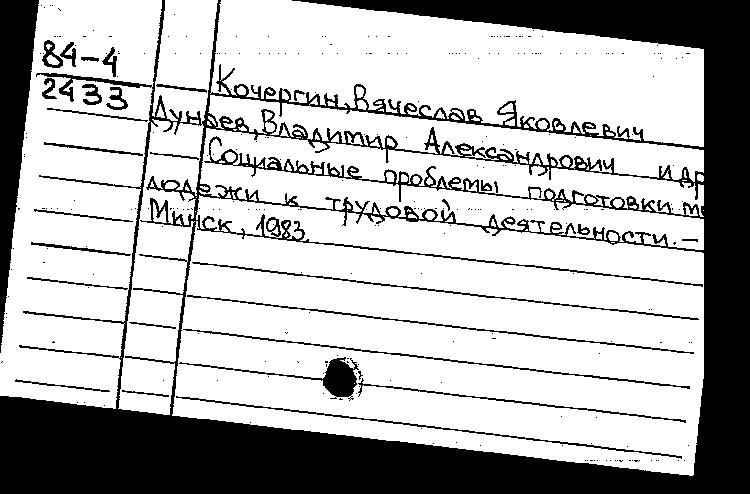 84-4
2433
Кочергин, Вячеслав Яковлевич
Дунаев, Владимир Александрович и др
Социальные проблемы подготовки мо
лодежи к трудовой деятельности. –
Минск, 1983.